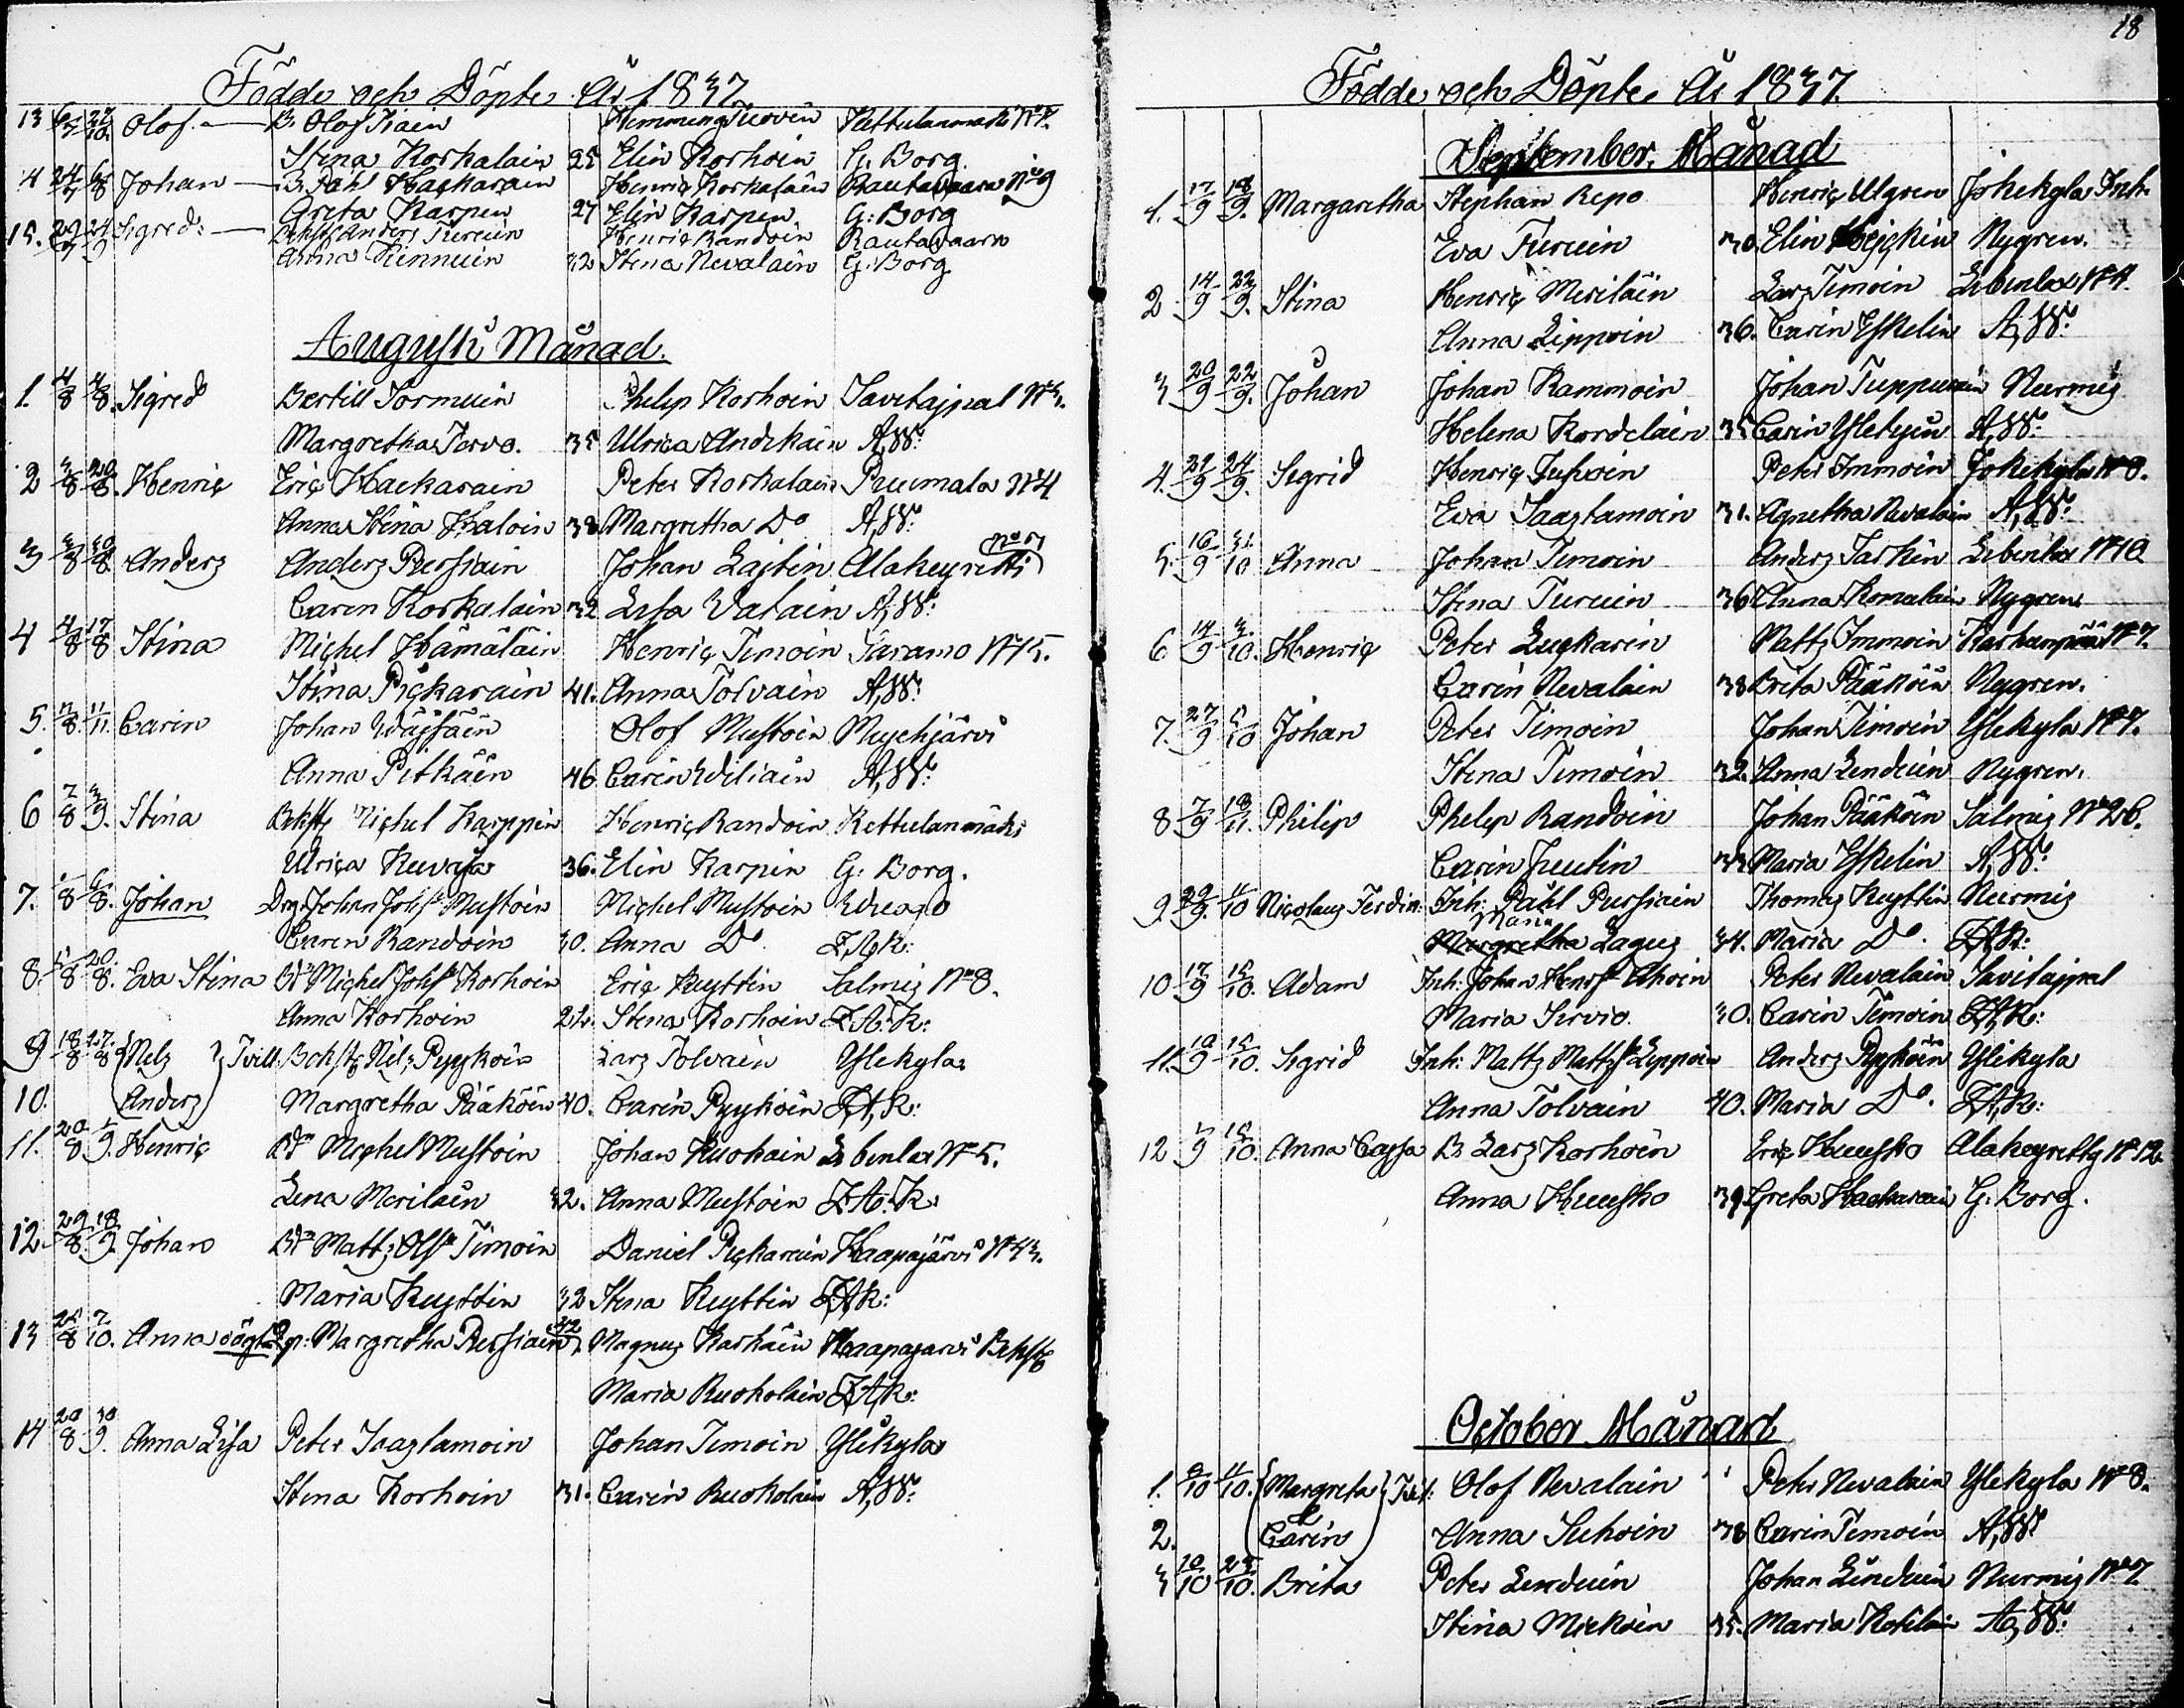 Födde och Döpte År 1837
13 Olof. B. Olof Hemming Kettulanmäki
Stina Korkalain 25 Elin Korhoin G: Borg.
Johan B. Påhl Hackarain Henric Korkalain Rautavaara No 9
Greta Karpen 27 Elin Karpen G: Borg
15. 29/7 24/9 Sigred: Anders Turuin Henric Randoin Rautavaara
Anna Kinnuin 32 Stina Nevalain G: Borg
Augusti Månad.
1. 4/8 4/8. Sigred Bertill Tormuin Philip Korhoin Savitajpal
Margretha Tervo. 35 Ulrica A, W:
2 3/8 20/8. Henric Eric Hackarain Peter Korkalain Puumala No 4
Anna Stina Haloin 38 Margretha Do A, W:
3 Anders Anders Pursiain Johan Lastin Alakeyritti
Caren Korkalain 32 Lisa Vatain A, W:
4 4/8 17/8 Stina Michel Hämäläin Henric Timoin Saramo No 15.
Stina Pickarain 41. Anna Tolvain A, W:
5. Carin Johan Väisäin Olof Mustoin Mujejärvi
Anna Pitkäin 46 Carin A, W:
6 7/8 3/9. Stina Michel Karppin Henric Randoin Kettulanmäki
Ulrica Kuvaja 36. Elin Karpin G: Borg.
7. Johan Drg. Johan Johss. Mustoin Michel Mustoin
Caren Randoin 30. Anna Do. F.A.K:
8. Eva Stina Michel Johss. Korhoin Eric Kuyttin Salmis No 8.
Anna Korhoin Stina Korhoin F.A.K:
9 18/8 27/8 Nils Tvill. Nils Pyykoin Lars Tolvain Ylikyla
10. Anders Margretha Pääköin 40. Carin Pyykoin F.A.K:
11. Henric Michel Mustoin Johan Kuohain Libenlax No 5.
Lena Merilain 32. Anna Mustoin F.A.K:
12. 29/8. 18/9. Johan Matts Olss. Timoin Daniel Pickarain Haapajärvi
Maria Kuyttin 32 Stina Kuyttin F.A.K:
13 25/8 7/10. Anna oägta Margretha Pursiain 42 Magnus Karhain Haapajarvi
Maria Ruokolain F.A.K:
14 20/8 30/9. Anna Lisa Peter Saastamoin Johan Timoin Ylikyla
Stina Korhoin 31. Carin Ruokolain A, W:
18
Födde och Döpte År 1837.
September Månad
1. 17/9 18/9. Margaretha Stephan Repo Henric Ulgren Jokikyla Inh.
Eva Turuin 30. Elin Nygren.
2 14/9 22/9. Stina Henric Merilain Lars Timoin Libenlax No 4.
Anna Lippoin 36. Carin Eskelin A, W:
3 20/9 22/9. Johan Johan Rammoin Johan Tuppurain Nurmis
Helena Kordelain 35 Carin A, W:
4. 24/9. Sigrid Henric Juhoin Peter Immoin Jokikyla No 8.
Eva Saastamoin 31. Agnetha Nevalain A, W:
5. Anna Johan Timoin Anders Tarkin Libenlax No 10
Stina Turuin 36 Anna Komalain Nygren
6 14/9 3/10. Henric Peter Luckarin Matts Immoin Karhanpää No 7.
Carin Nevalain 38 Brita Pääköin Nygren.
7. 27/9 5/10 Johan Peter Timoin Johan Timoin Ylikyla No 7.
Stina Timoin 32. Anna Lenduin Nygren.
8 7/9 18/11. Philip Philip Randoin Johan Pääköin Salmis No 26.
Carin Juutin 33 Maria Eskelin A, W:
9. Nicolaus Ferdin. Inh: Påhl Pursiain Thomas Kuyttin Nurmis
Maria
Margretha Lagus 34. Maria Do. F.A.K:
10 17/9 15/10. Adam Inh: Johan Henrss. Ahoin Peter Nevalain Savitajpal
Maria Sirvio. 30. Carin Timoin F.A.K:
11. 10/9 15/10. Sigrid Inh: Matts Mattss. Lippoin Anders Pyykoin Ylikyla
Anna Tolvain 40. Maria Do. F.A.K:
12 15/10. Anna Cajsa B Lars Korhoin Eric Huusko Alakeyritty No 12
Anna Huusko 39. Greta Hackarain G: Borg.
October Månad
1. 11/10. Margreta Tvil: Olof Nevalain Peter Nevalain Ylikyla No 8.
2. & Carin Anna Suhoin 38 Carin Timoin A, W:
3 10/10 25/10. Brita Peter Lenduin Johan Linduin Nurmis No 7.
Stina Mickoin 35. Maria A, W: